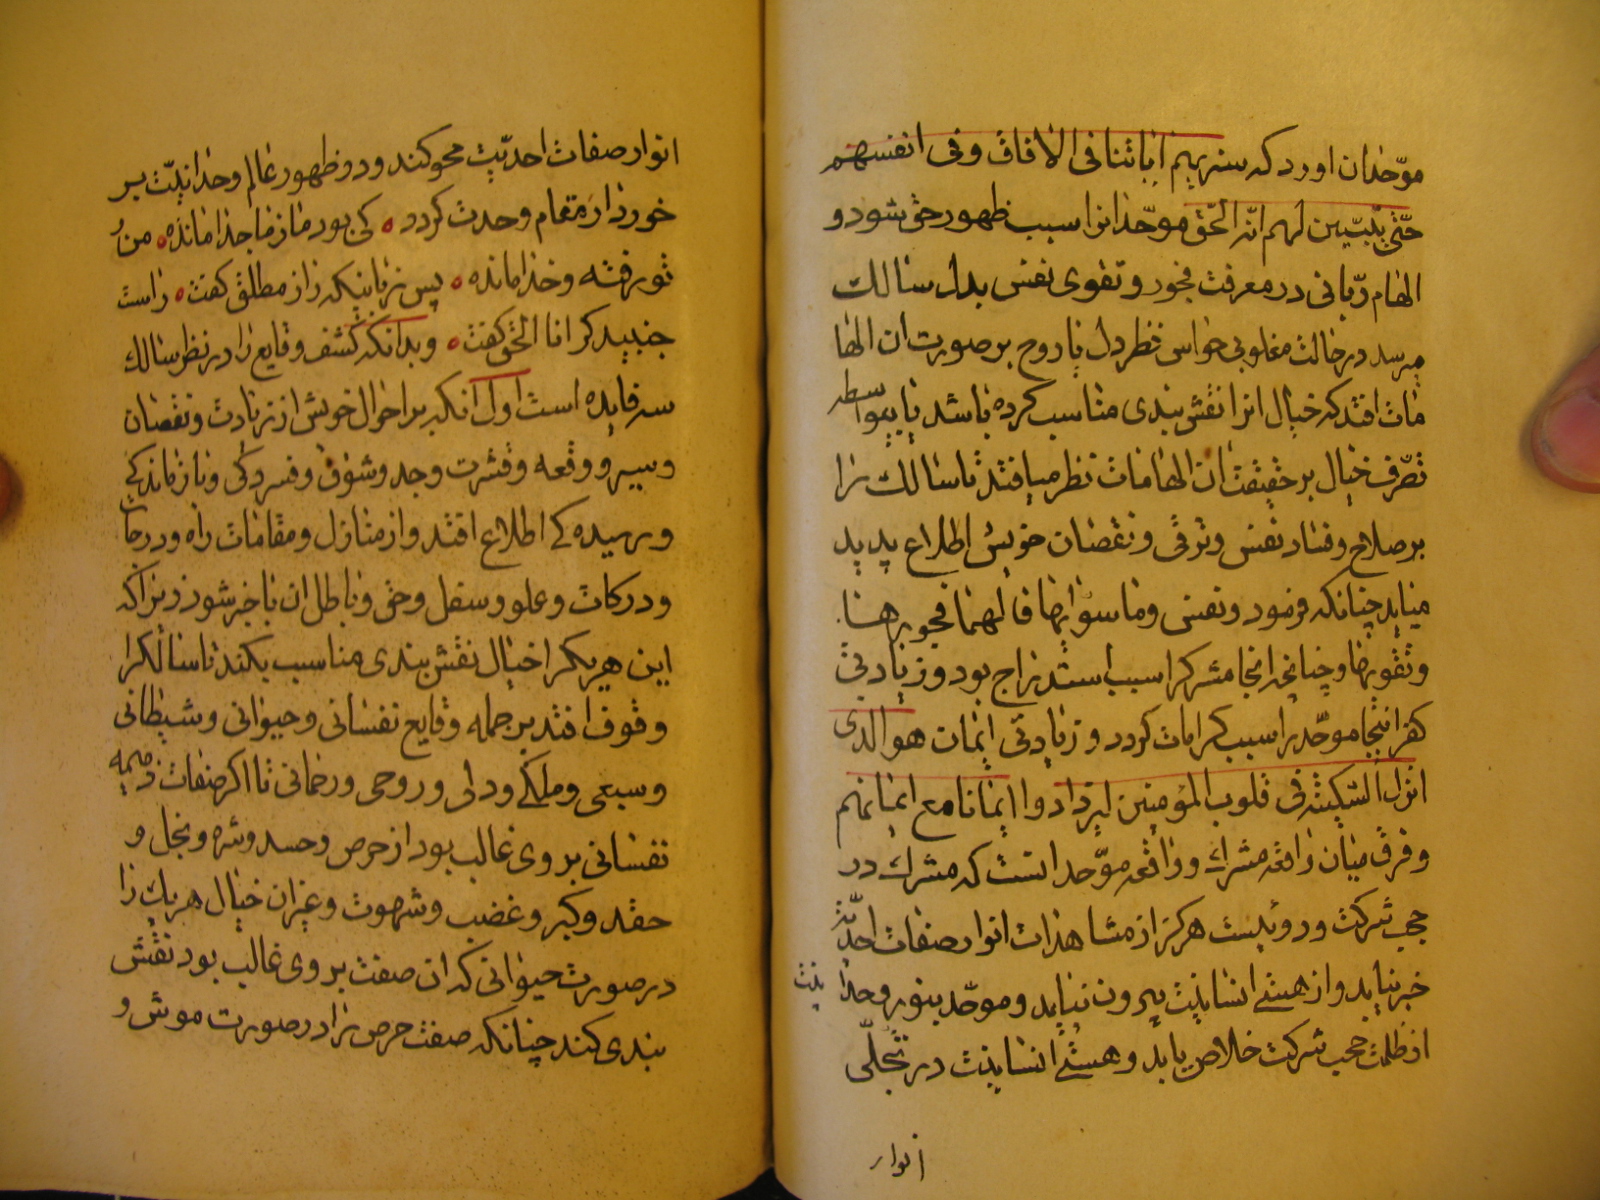 موحّدان اورد كه سنريهم اياتنا فى الافاق وفى انفسهم
حتّى يتبيّن لهم انّه الحقّ موحّدانرا سبب ظهور حق شود و
الهام ربّانى در معرفت فجور و تقوى نفس بدل سالك
ميرسد در حالت مغلوبى حواس نظر دل يا روح بر صورت ان الها
مات افتد كه خيال انرا نقش بندى مناسب كرده باشد يا بيواسطه
تصرّف خيال بر حقيقت ان الهامات نظر ميافتد تا سالك را
بر صلاح و فساد نفس و ترقى و نقصان خويش اطلاع پديد
ميايد چنانكه فرمود و نفس وما سوّيها فالهمها فجورها
وتقويها و چنانچه انجا مشركرا سبب استدراج بود و زيادتى
كفر اينجا موحّد را سبب كرامات كردد و زيادتى ايمان هو الذى
انزل السّكينة فى قلوب المؤمنين ليزدادوا ايمانا مع ايمانهم
و فرق ميان واقعه مشرك و واقعه موحّد انست كه مشرك در
حجب شركت و دوئيست هركز از مشاهدات انوار صفات احديّت
خبر نيابد و از هستى انسانيت بيرون نيايد و موحّد بنور وحدانيت
از ظلمت حجب شركت خلاص يابد و هستى انسانيت در تجلّى
انوار
انوار صفات احديّت محو كند و در ظهور عالم وحدانيّت بر
خوردار مقام وحدت كردد ه كى بود ما ز ما جدا مانده ه من و
تو رفته و خدا مانده ه پس زبانيكه راز مطلق كفت ه راست
جنبيد كر انا الحق كفت ه و بدانكه كشف وقايع را در نظر سالك
سه فايده است اول انكه بر احوال خويش از زيادت و نقصان
و سير و وقعه و فترت و وجد و شوق و فسردكى و بازماندكى
و رسيدكى اطلاع افتد و از منازل و مقامات راه و درجات
و دركات و علو و سفل و حق و باطل ان با خبر شود زيراكه
اين هر يكرا خيال نقش بندى مناسب بكند تا سالكرا
وقوف افتد بر جمله وقايع نفسانى و حيوانى و شيطانى
و سبعى و ملكى و دلى و روحى و رحمانى تا اكر صفات ذميمه
نفسانى بر وى غالب بود از حرص و حسد و شره و بخل و
حقد و كبر و غضب و شهوت و غير ان خيال هر يك را
در صورت حيوانى كه ان صفت بر وى غالب بود نقش
بندى كند چنانكه صفت حرص را در صورت موش و